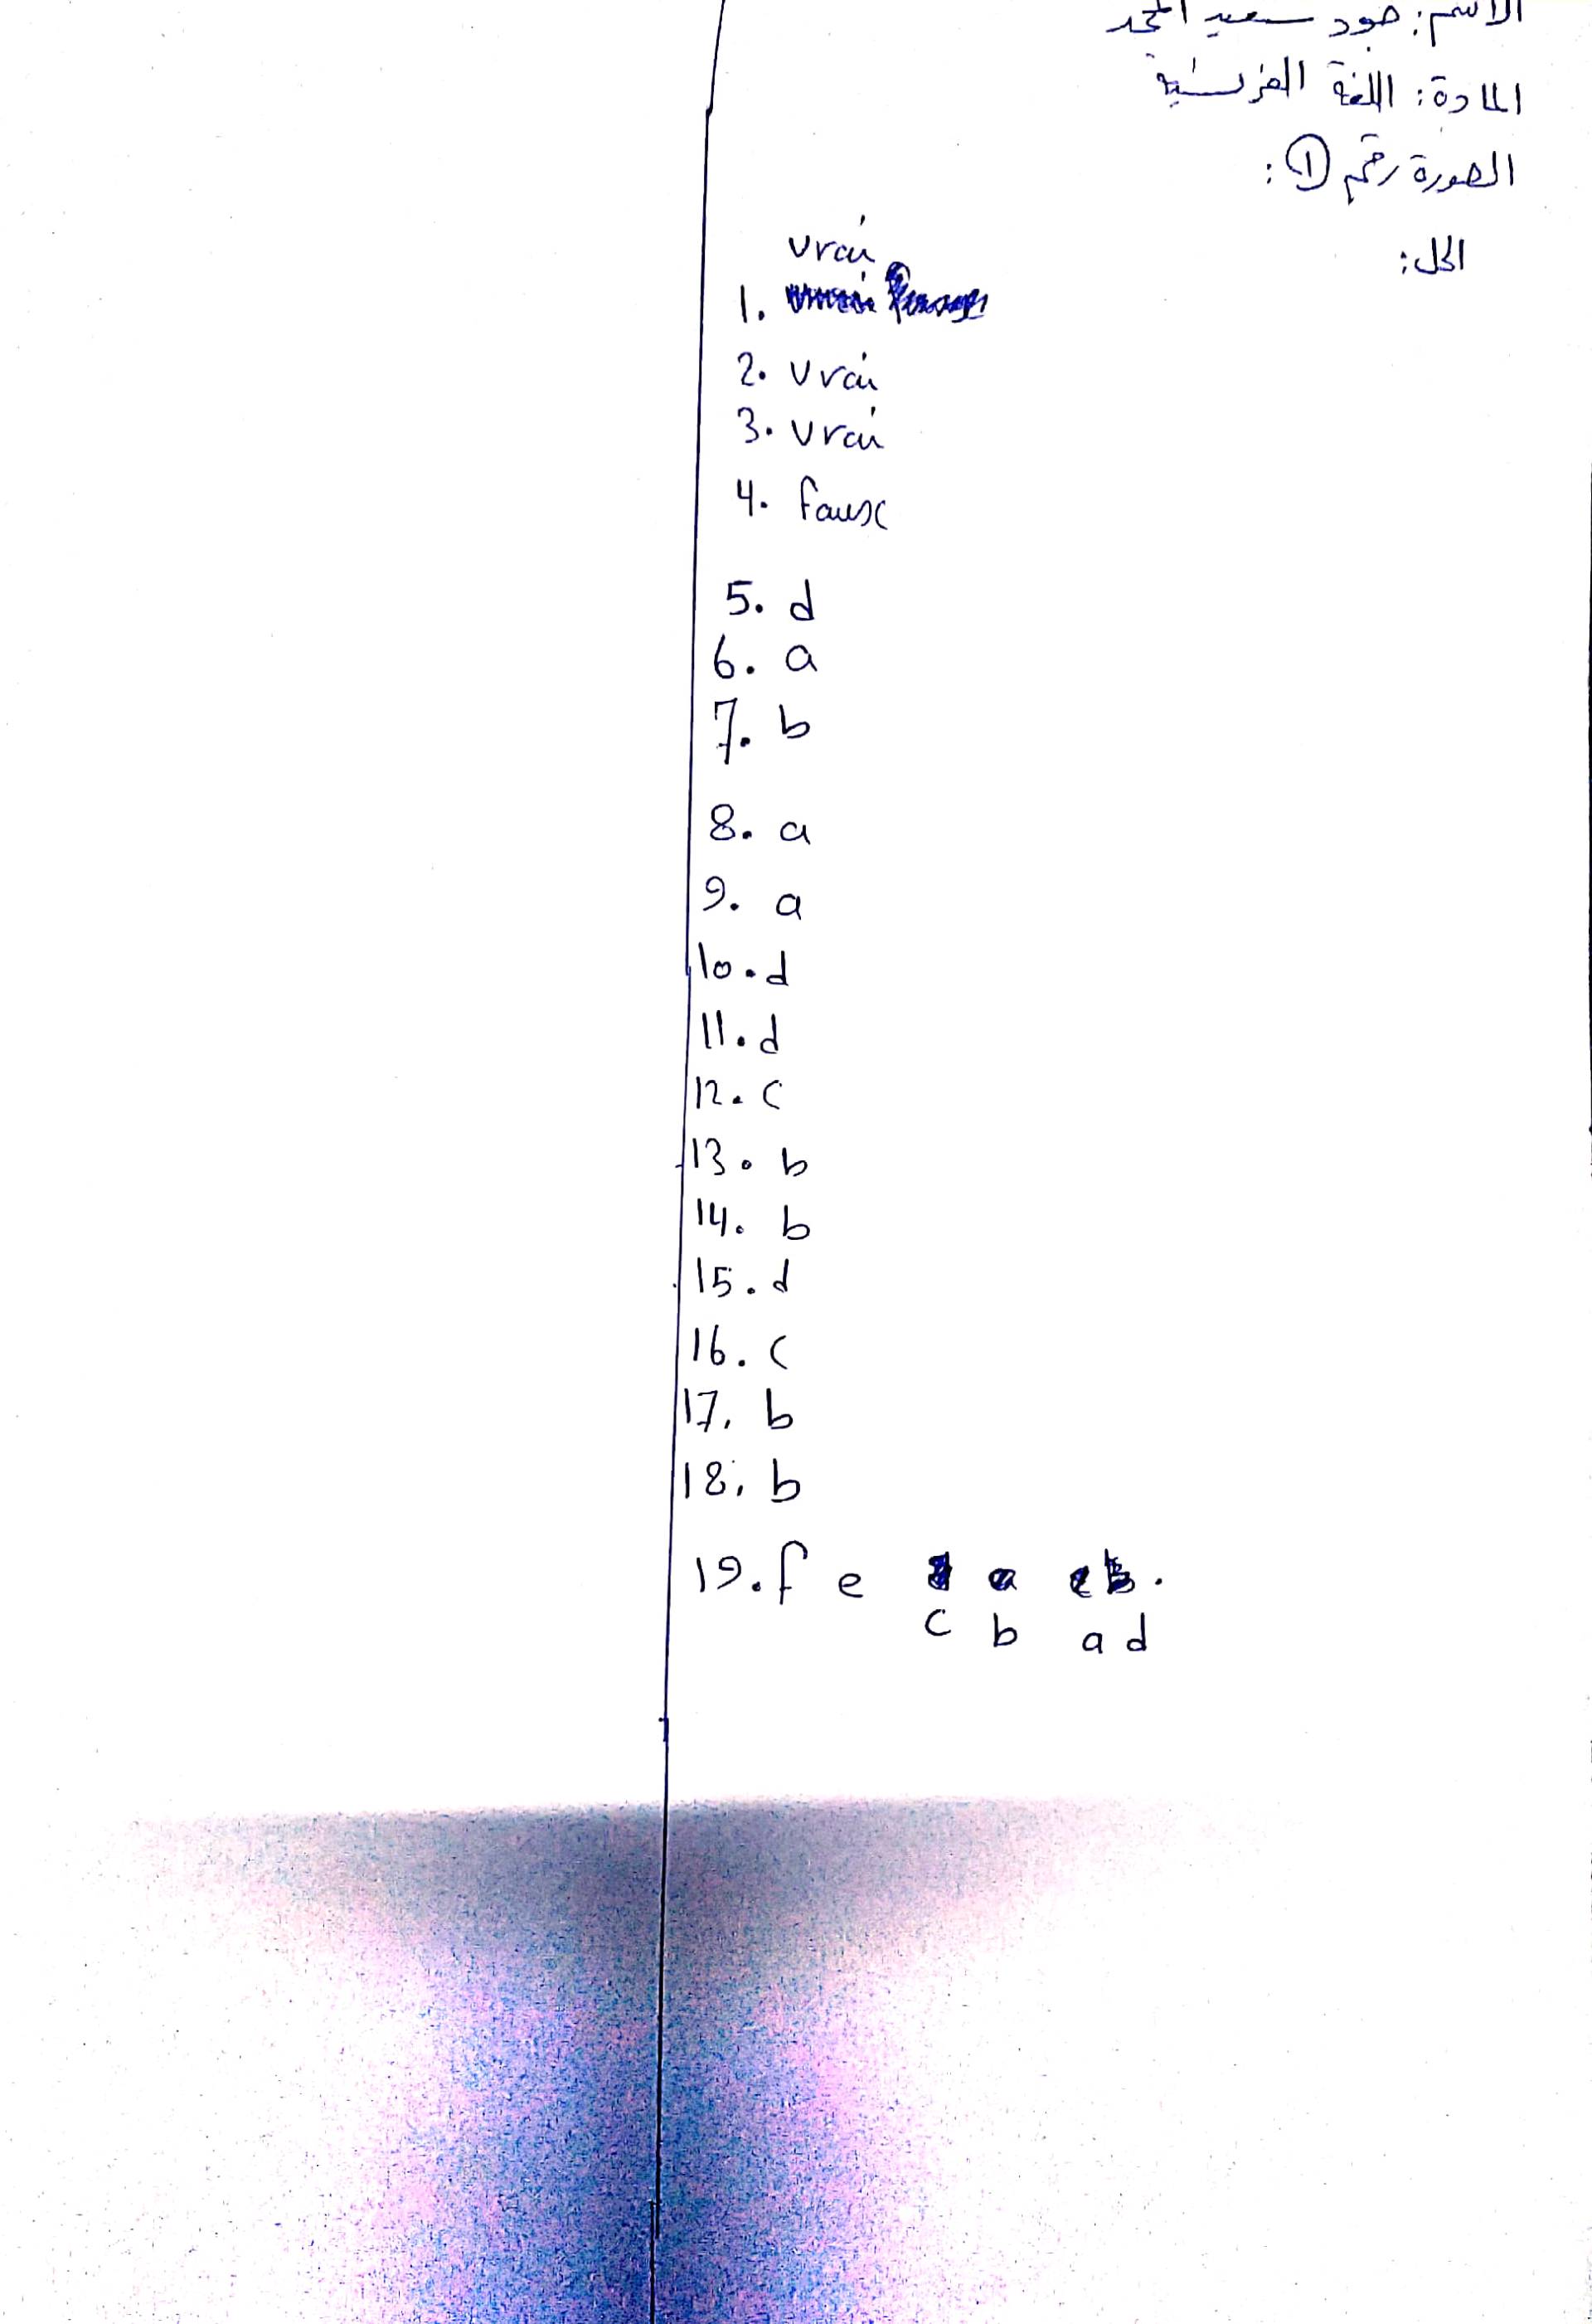 الاسم: جود سعيد المحمد
المادة: اللغة الفرنسية
الصورة رقم ①:
الحل:
vrai
1.
2. vrai
3. vrai
4. faux
5. d
6. a
7. b
8. a
9. a
10. d
11. d
12. c
13. b
14. b
15. d
16. c
17. b
18. b
19. f e
c b a d